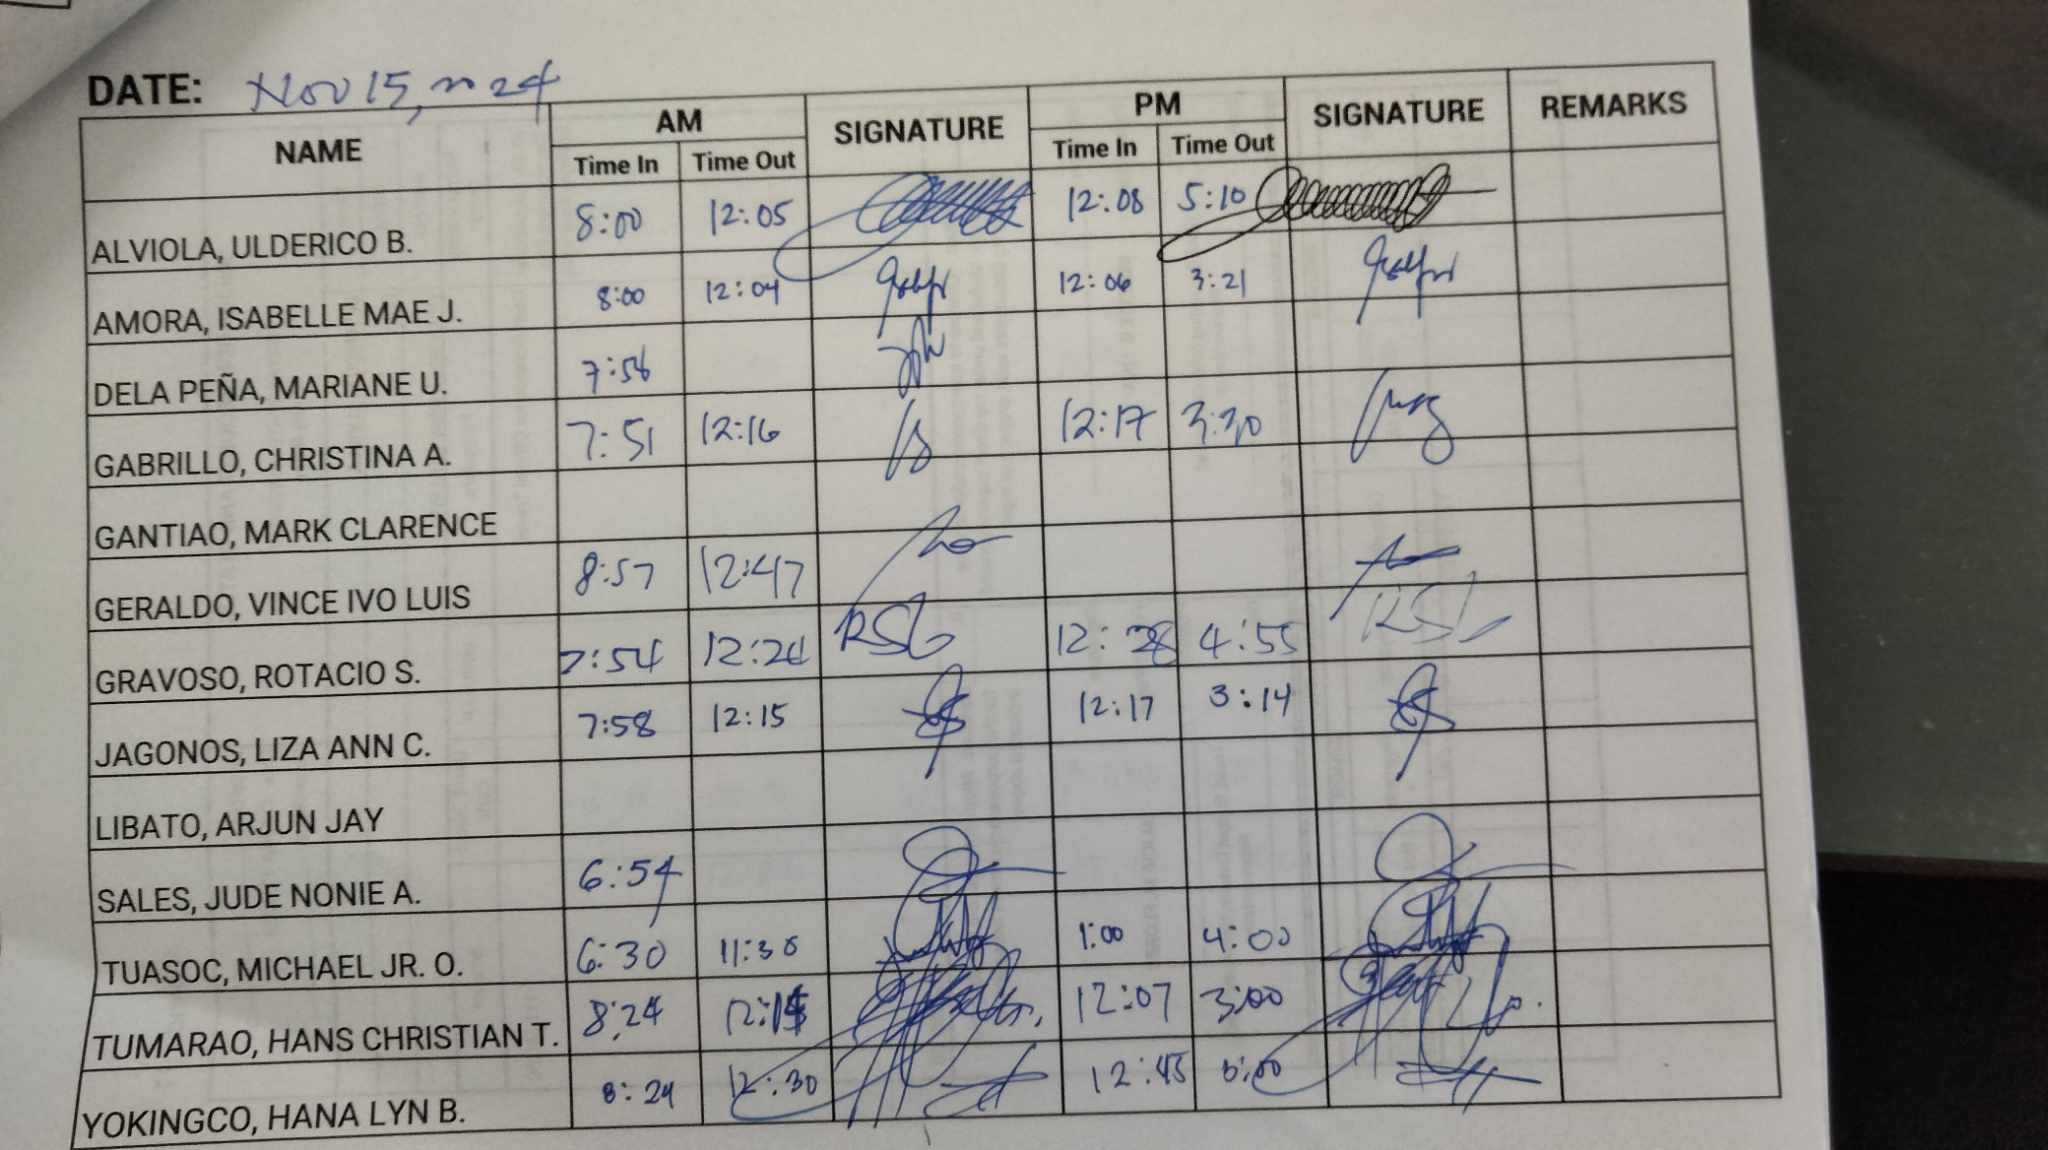 DATE: Nov 15, 2024
NAME AM SIGNATURE PM SIGNATURE REMARKS
Time In Time Out Time In Time Out
ALVIOLA, ULDERICO B. 8:00 12:05 12:08 5:10
AMORA, ISABELLE MAE J. 8:00 12:04 12:06 3:21
DELA PEÑA, MARIANE U. 7:58
GABRILLO, CHRISTINA A. 7:51 12:16 12:17 3:30
GANTIAO, MARK CLARENCE
GERALDO, VINCE IVO LUIS 8:57 12:47
GRAVOSO, ROTACIO S. 7:54 12:24 RSG 12:28 4:55
JAGONOS, LIZA ANN C. 7:58 12:15 12:17 3:14
LIBATO, ARJUN JAY
SALES, JUDE NONIE A. 6:54
TUASOC, MICHAEL JR. O. 6:30 11:30 1:00 4:00
TUMARAO, HANS CHRISTIAN T. 8:24 12:07 3:00
YOKINGCO, HANA LYN B. 8:24 12:30 12:45